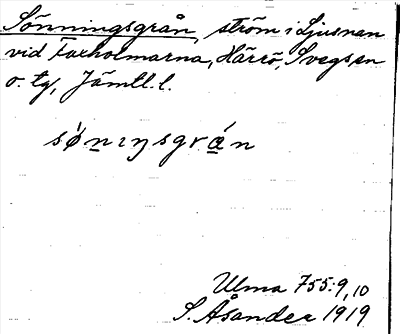 Sönningsgrån, ström i Ljusnan
vid Laxholmarna, Härrö, Svegs sn
o. tg, Jämtl. l.
sǿnıŋsgrǻn
Ulma 755:9,10
S. Åsander 1919